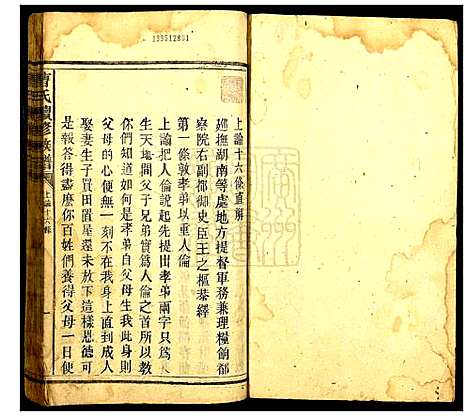 上諭十六條直解
巡撫湖南等處地方提督軍務兼理糧餉都
察院右副都御史臣王之樞恭繹
第一條敦孝弟以重人倫
上諭把人倫說起先提出孝弟兩字只爲人
生天地間父子兄弟實爲人倫之首所以教
你們知道如何是孝弟自父母生我此身則
父母的心便無一刻不在我身上直到成人
娶妻生子買田置屋還未放這樣恩德可
是報答得盡麽你百姓們養得父母一日便
曹氏續修族譜
上諭十六條
233512801